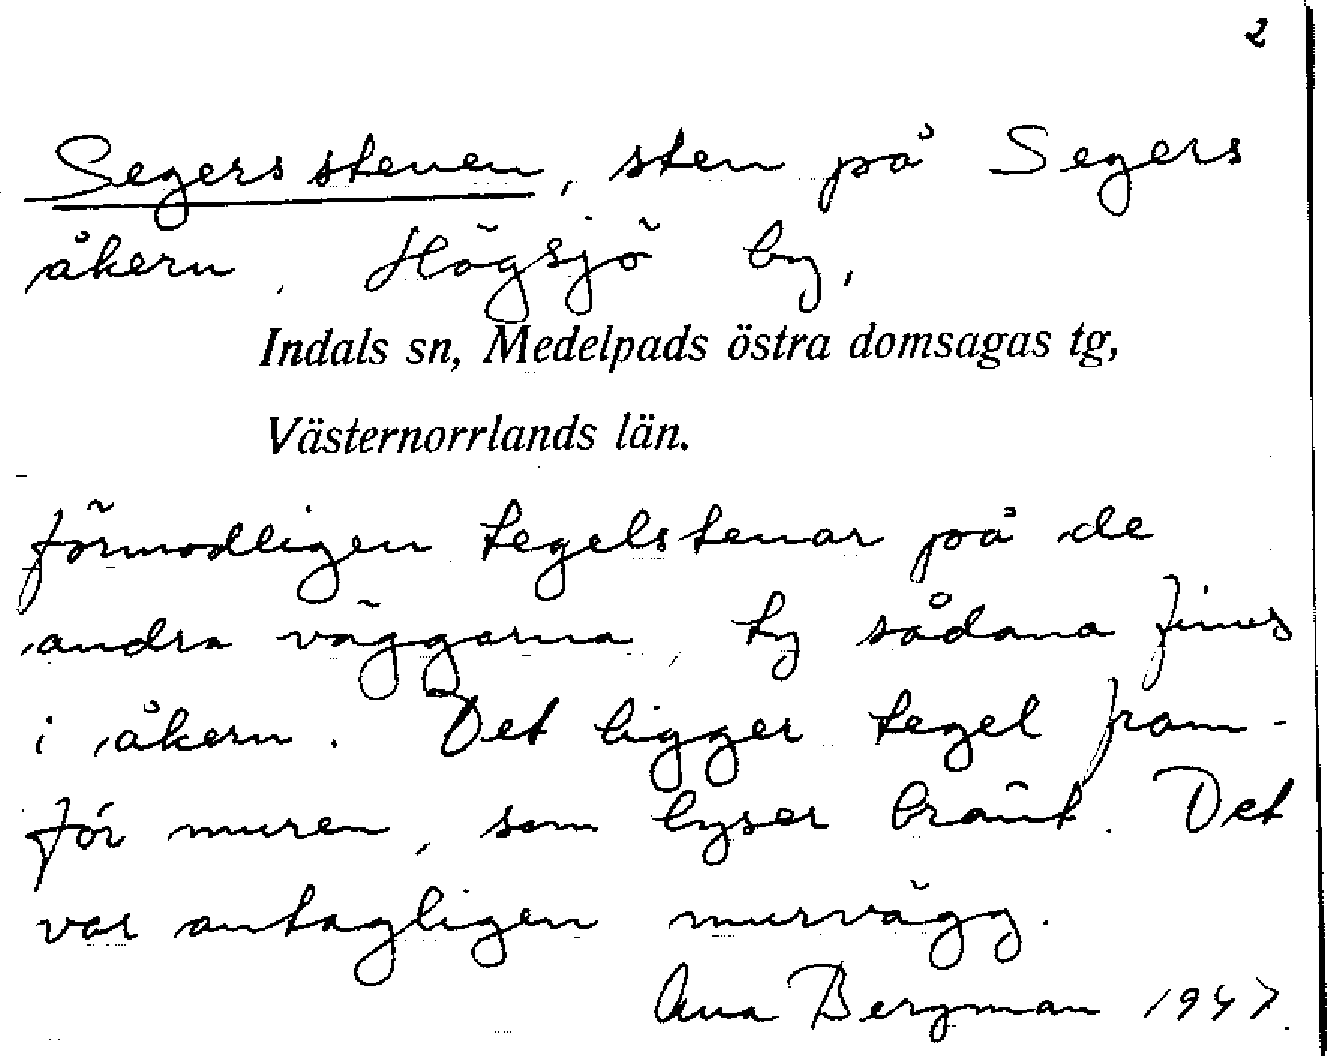 2
Segersstenen, sten på Segers
åkern, Högsjö by,
Indals sn, Medelpads östra domsagas tg,
Västernorrlands län.
förmodligen tegelstenar på de
andra väggarna, ty sådana finns
i åkern. Det ligger tegel fram-
för muren, som lyser bränt. Det
var antagligen murvägg.
Ana Bergman 1947.